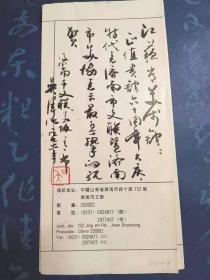 江苏省美术馆：
正值贵馆六十周年大庆
特代表济南市文联暨济南
市美协表示最热烈的祝
贺
济南市文联
吴泽浩
通讯地址：中国山东省济南市经十路 152 号
济南市文联
邮编：250002
电话：(0531) 6924877 (办)
2977457 (宅)
152 Jing shi Rd. Jinan Shandong
Postcode: China 250002
Tel: (0531) 6924877 (O)
2977457 (H)